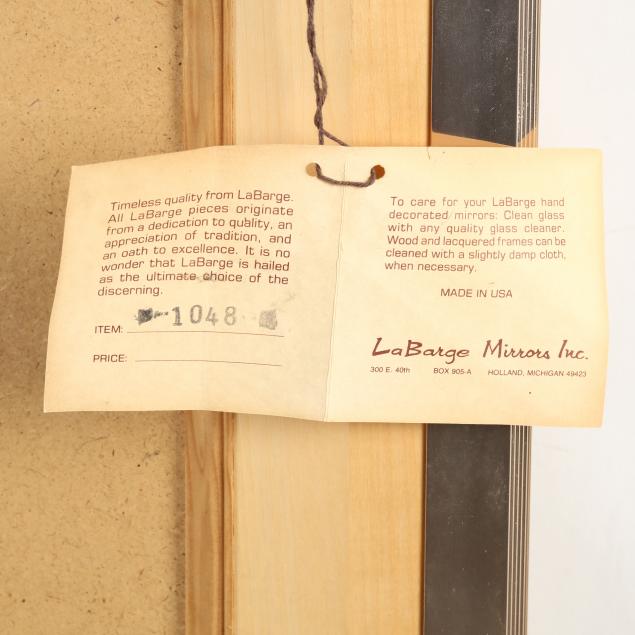 Timeless quality from LaBarge.
All LaBarge pieces originate
from a dedication to quality, an
appreciation of tradition, and
an oath to excellence. It is no
wonder that LaBarge is hailed
as the ultimate choice of the
discerning.
ITEM: 1048
PRICE:
To care for your LaBarge hand
decorated mirrors: Clean glass
with any quality glass cleaner.
Wood and lacquered frames can be
cleaned with a slightly damp cloth,
when necessary.
MADE IN USA
LaBarge Mirrors Inc.
300 E. 40th BOX 905-A HOLLAND, MICHIGAN 49423